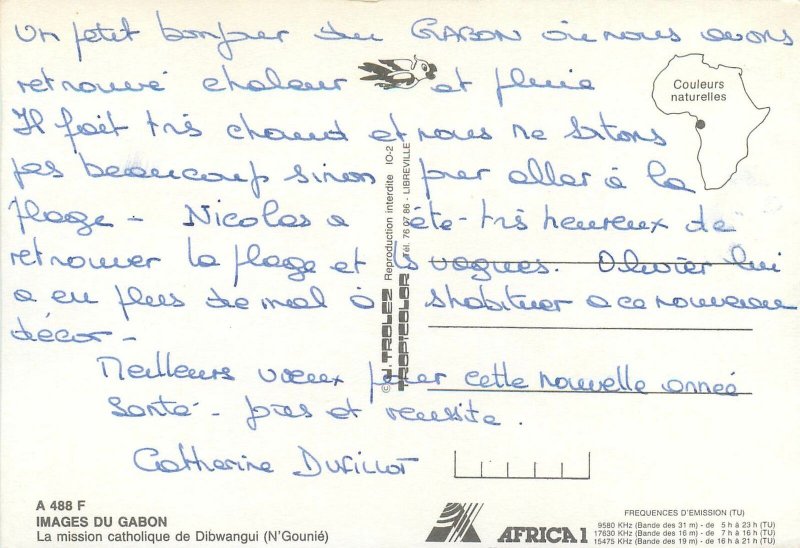 Un petit bonjour du GABON où nous avons
retrouvé chaleur et pluie
Il fait très chaud et nous ne sortons
pas beaucoup sinon pour aller à la
plage - Nicolas a été très heureux de
retrouver la plage et les vagues. Olivier lui
a eu plus de mal à s'habituer a ce nouveau
décor -
Meilleurs vœux pour cette nouvelle année
Santé - joies et réussite.
Catherine
Couleurs
naturelles
© J. TROLEZ Reproduction interdite IO-2
TROPICOLOR Tél. 76 07 86 - LIBREVILLE
A 488 F
IMAGES DU GABON
La mission catholique de Dibwangui (N'Gounié)
AFRICA 1
FREQUENCES D'EMISSION (TU)
9580 KHz (Bande des 31 m) - de 5 h à 23 h (TU)
17630 KHz (Bande des 16 m) - de 7 h à 16 h (TU)
15475 KHz (Bande des 19 m) - de 16 h à 21 h (TU)